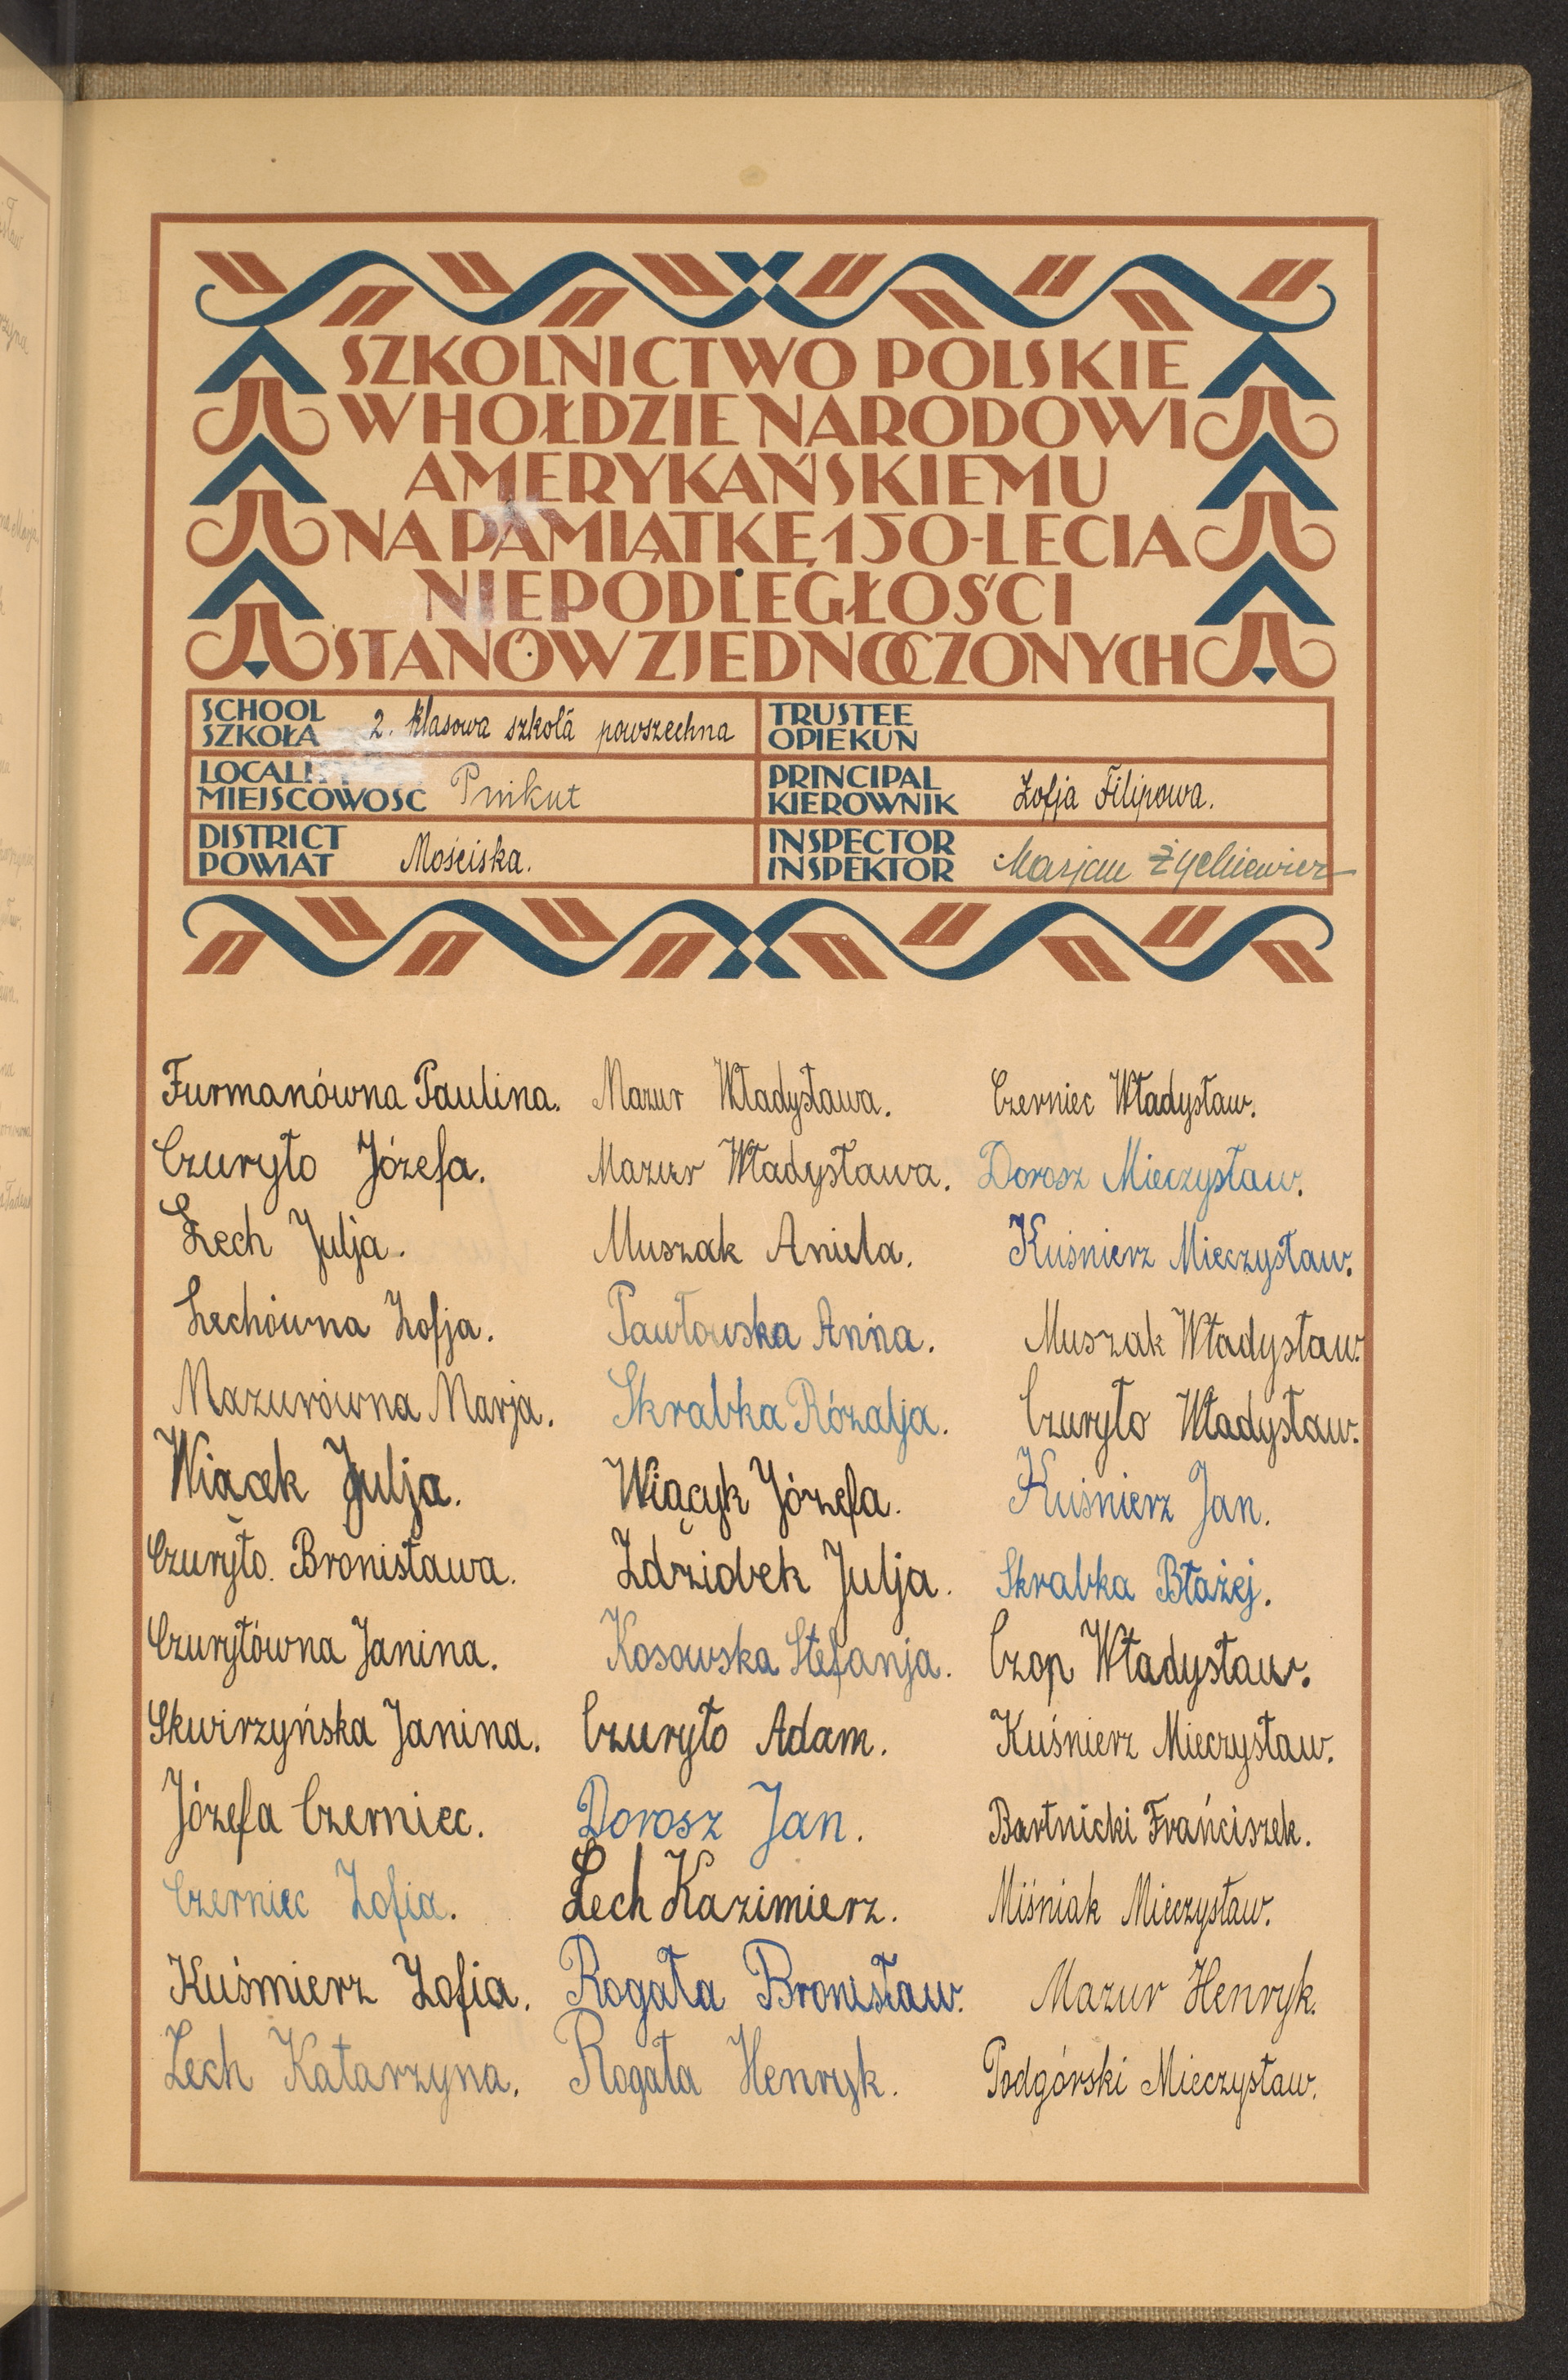 SZKOLNICTWO POLSKIE
W HOŁDZIE NARODOWI
AMERYKAŃSKIEMU
NA PAMIĄTKĘ 150-LECIA
NIEPODLEGŁOŚCI
STANÓW ZJEDNOCZONYCH
SCHOOL
SZKOŁA 2. klasowa szkoła powszechna
TRUSTEE
OPIEKUN
LOCALI
MIEJSCOWOŚĆ Pnikut
PRINCIPAL
KIEROWNIK Zofja Filipowa.
DISTRICT
POWIAT Mościska.
INSPECTOR
INSPEKTOR Marjan Żychiewicz
Furmanówna Paulina.
Czuryło Józefa.
Lech Julja.
Lechówna Zofja.
Mazurówna Marja.
Wiącek Julja.
Czuryło. Bronisława.
Czuryłówna Janina.
Skwirzyńska Janina.
Józefa Czerniec.
Czerniec Zofia.
Kuśmierz Zofia.
Lech Katarzyna.
Mazur Władysława.
Mazur Władysława.
Muszak Aniela.
Pawłowska Anna.
Skrabka Rózalja.
Wiącyk Józefa.
Zdziobek Julja.
Kosowska Stefanja.
Czuryło Adam.
Dorosz Jan.
Lech Kazimierz.
Rogała Bronisław.
Rogała Henryk.
Czerniec Władysław.
Dorosz Mieczysław.
Kuśnierz Mieczysław.
Muszak Władysław.
Czuryło Władysław.
Kuśnierz Jan.
Skrabka Błażej.
Czop Władysław.
Kuśnierz Mieczysław.
Bartnicki Frańciszek.
Miśniak Mieczysław.
Mazur Henryk.
Podgórski Mieczysław.